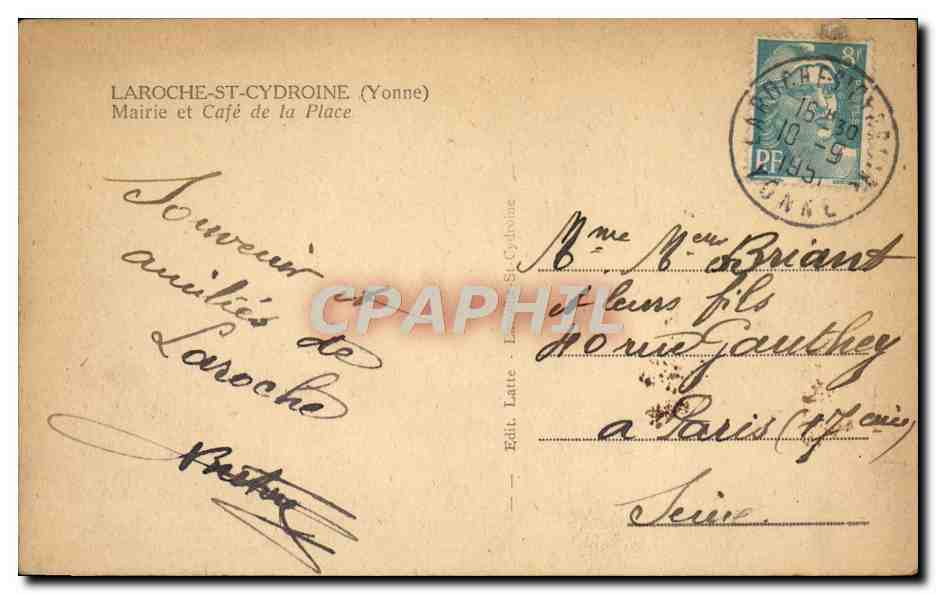 LAROCHE-ST-CYDROINE (Yonne)
Mairie et Café de la Place
8F
RF
LAROCHE-ST-CYDROINE
16 H30
10 -9
1951
YONNE
Souvenir et
amitiés
de
Laroche
Edit. Latte - La St-Cydroine
CPAPHIL
Mme Briant
et leurs fils
40 rue Gauthey
a Paris (17eme)
Seine